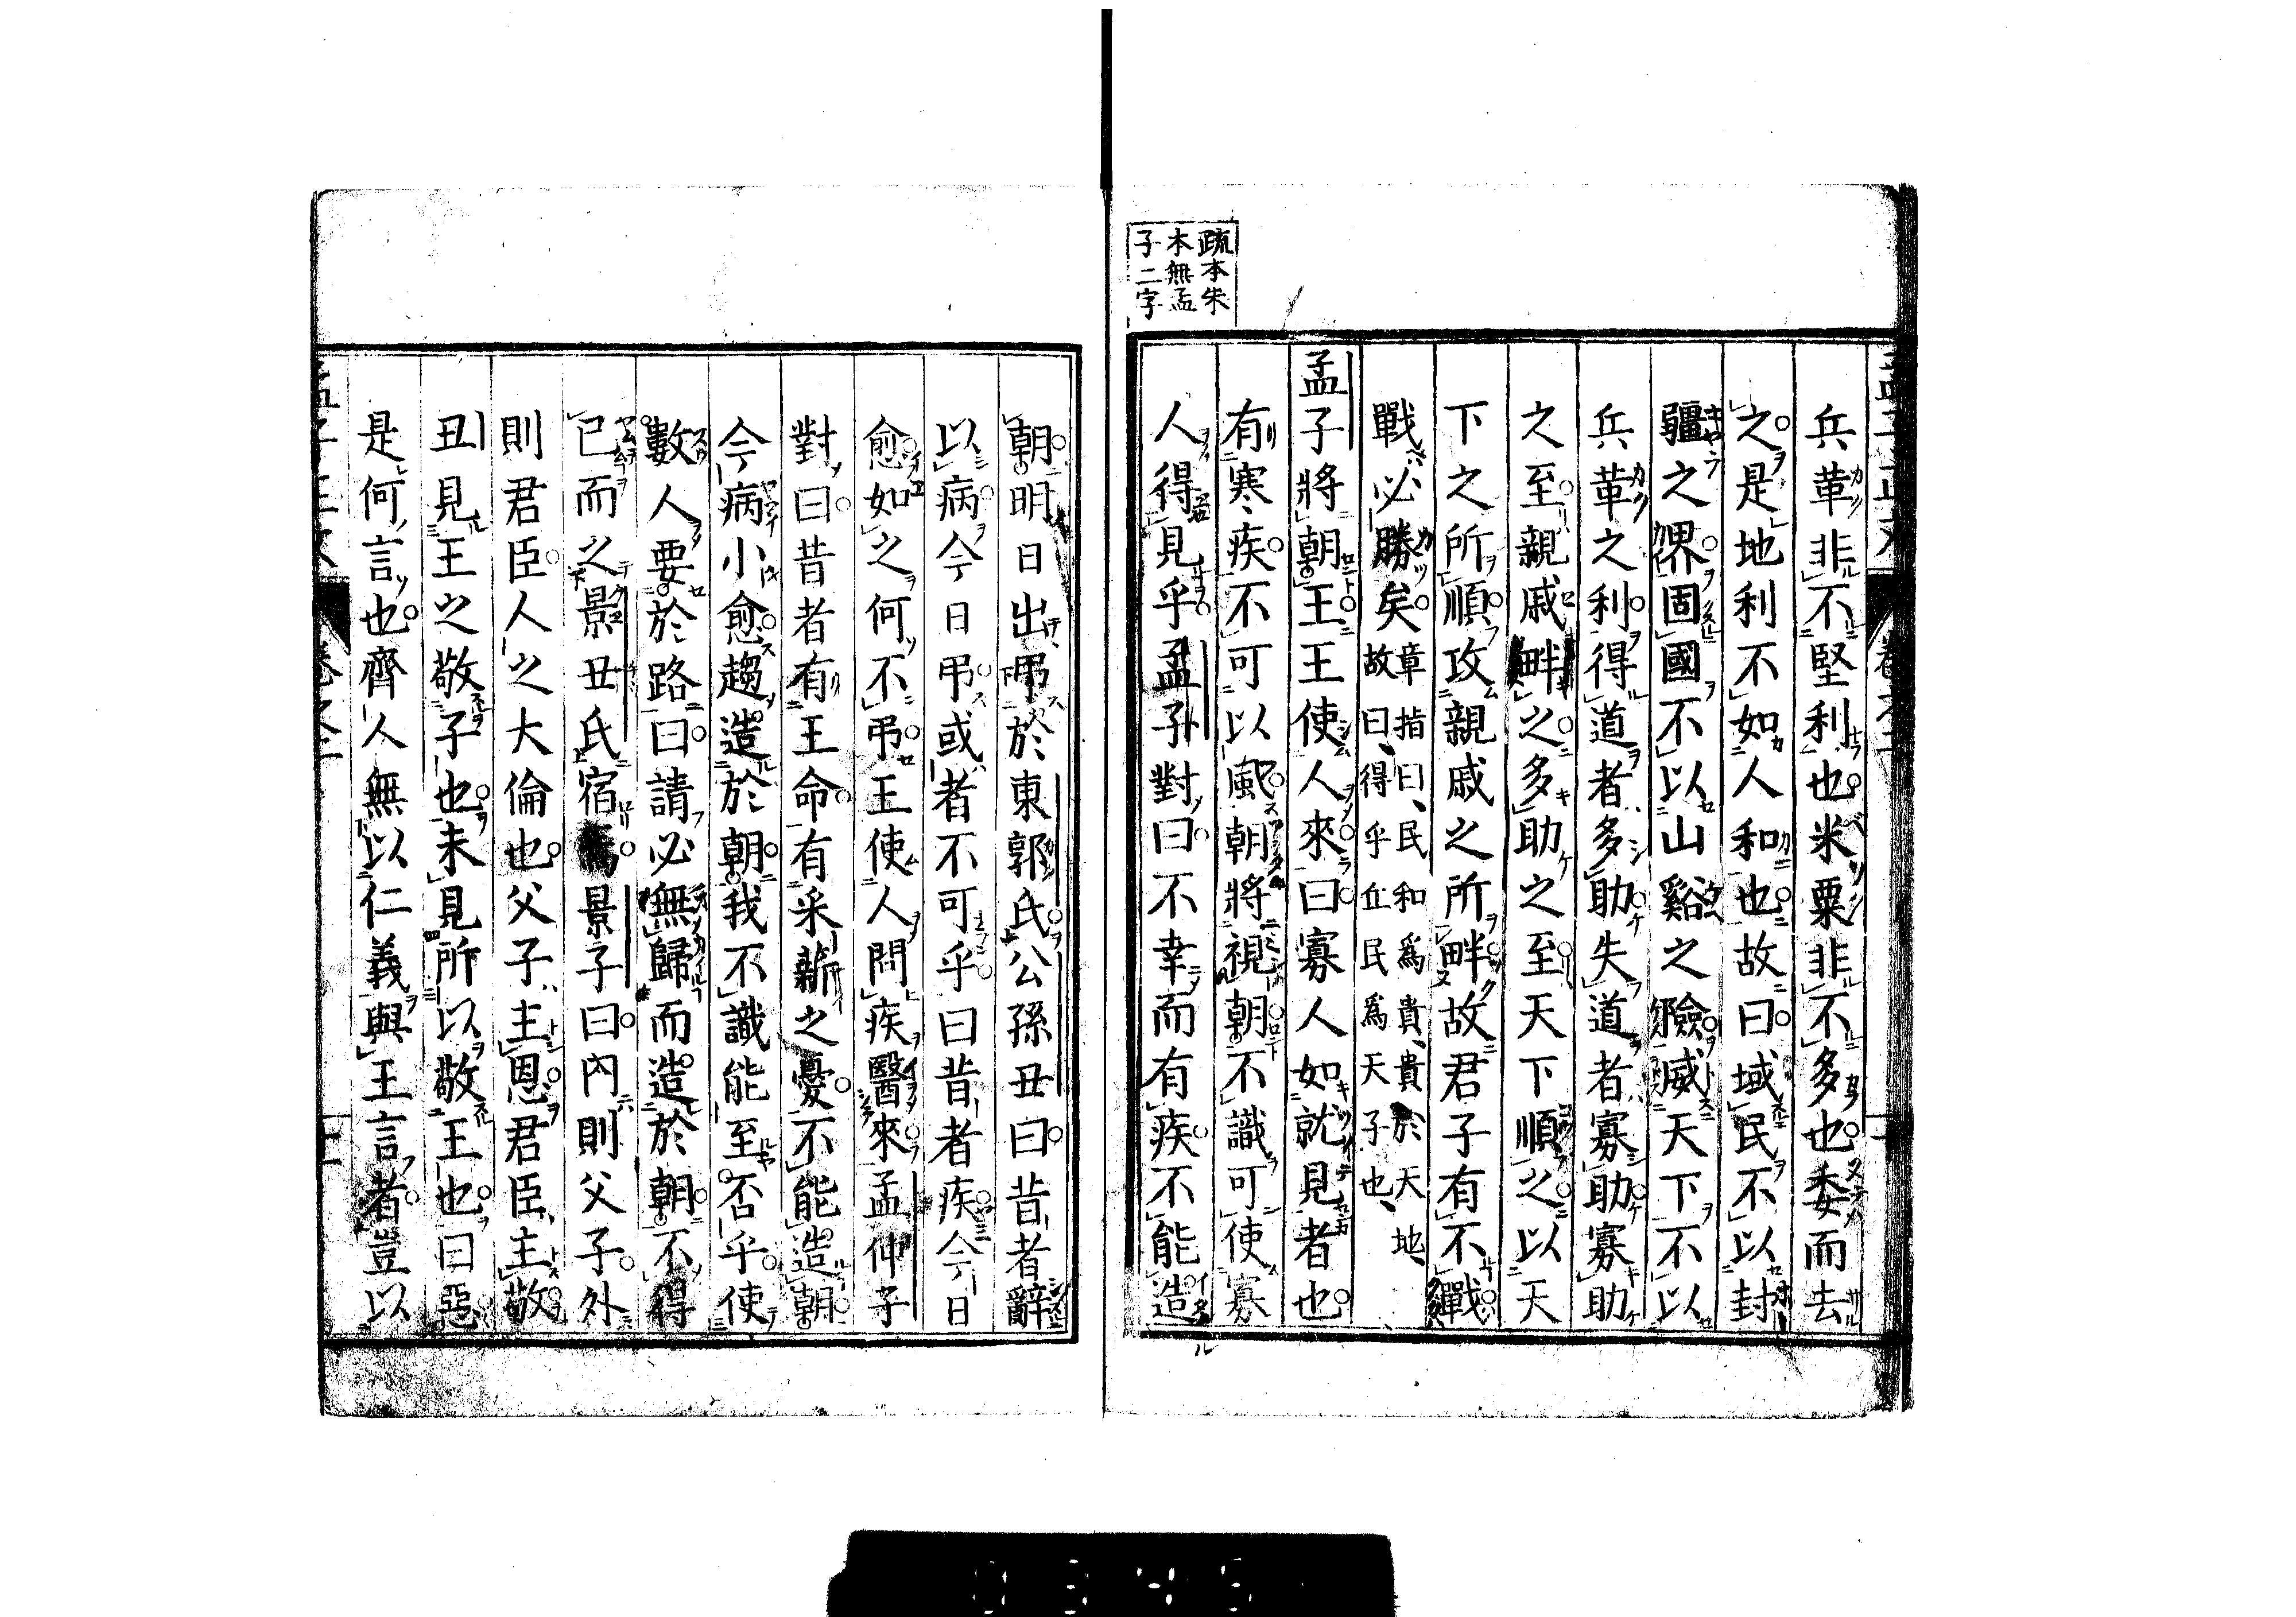 兵革非不堅利也米粟非不多也委而去
之是地利不如人和也故曰域民不以封
疆之界固國不以山谿之險威天下不以
兵革之利得道者多助失道者寡助寡助
之至親戚畔之多助之至天下順之以天
下之所順攻親戚之所畔故君子有不戰
戰必勝矣
章指曰、民和爲貴、貴於天地、
故曰、得乎丘民爲天子也、
疏本朱
本無孟
子二字
孟子將朝王王使人來曰寡人如就見者也
有寒疾不可以風朝將視朝不識可使寡
人得見乎孟子對曰不幸而有疾不能造
朝明日出吊於東郭氏公孫丑曰昔者辭
以病今日吊或者不可乎曰昔者疾今日
愈如之何不吊王使人問疾醫來孟仲子
對曰昔者有王命有采薪之憂不能造朝
今病小愈趨造於朝我不識能至否乎使
數人要於路曰請必無歸而造於朝不得
已而之景丑氏宿焉景子曰內則父子外
則君臣人之大倫也父子主恩君臣主敬
丑見王之敬子也未見所以敬王也曰惡
是何言也齊人無以仁義與王言者豈以